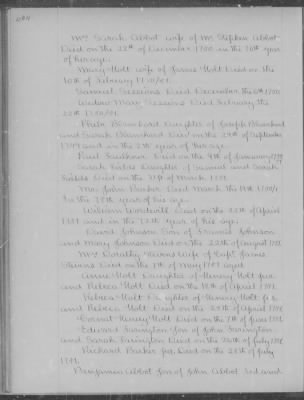 Mrs Sarah Abbot wife of Mr Stephen Abbot
Died on the 28th of December 1750 in the year
of her age.
Mary Holt wife of James Holt Died on the
10th of February 1750/51.
Samuel Sessions Died December the 6th 1750
Widow Mary Sessions Died February the
22th 1750/51.
Phebe Blanchard Daughter of Joseph Blanchard
and Sarah Blanchard Died on the 29th of September
and in the 2th year of his age.
Paul Faulkner Died on the 9th of January
Sarah Daughter of Samuel and Sarah
Died on the 31st of March 1751.
Mr John Barker Died March the 1750/1
In the year of his age.
William Wardwell Died on the of April
1751 and in the year of his age.
David Johnson Son of Francis Johnson
and Mary Johnson Died on the 22th of August 1751
Mrs Dorothy Stevens Wife of Capt James
Stevens Died on the 1st of May 1751 aged
Anne Holt Daughter of Henery Holt jur
and Rebeca Holt Died on the 18th of April 1751.
Rebeca Holt Daughter of Henery Holt jur
and Rebeca Holt Died on the 28th of April 1751
Henery Holt Died on the 7th of June 1751
Edward Farington Son of John Farington
and Sarah Farington Died on the of July 1751
Richard Barker jur Died on the 28th of July
1751.
Benjamin Abbot Son of John Abbot 3d and